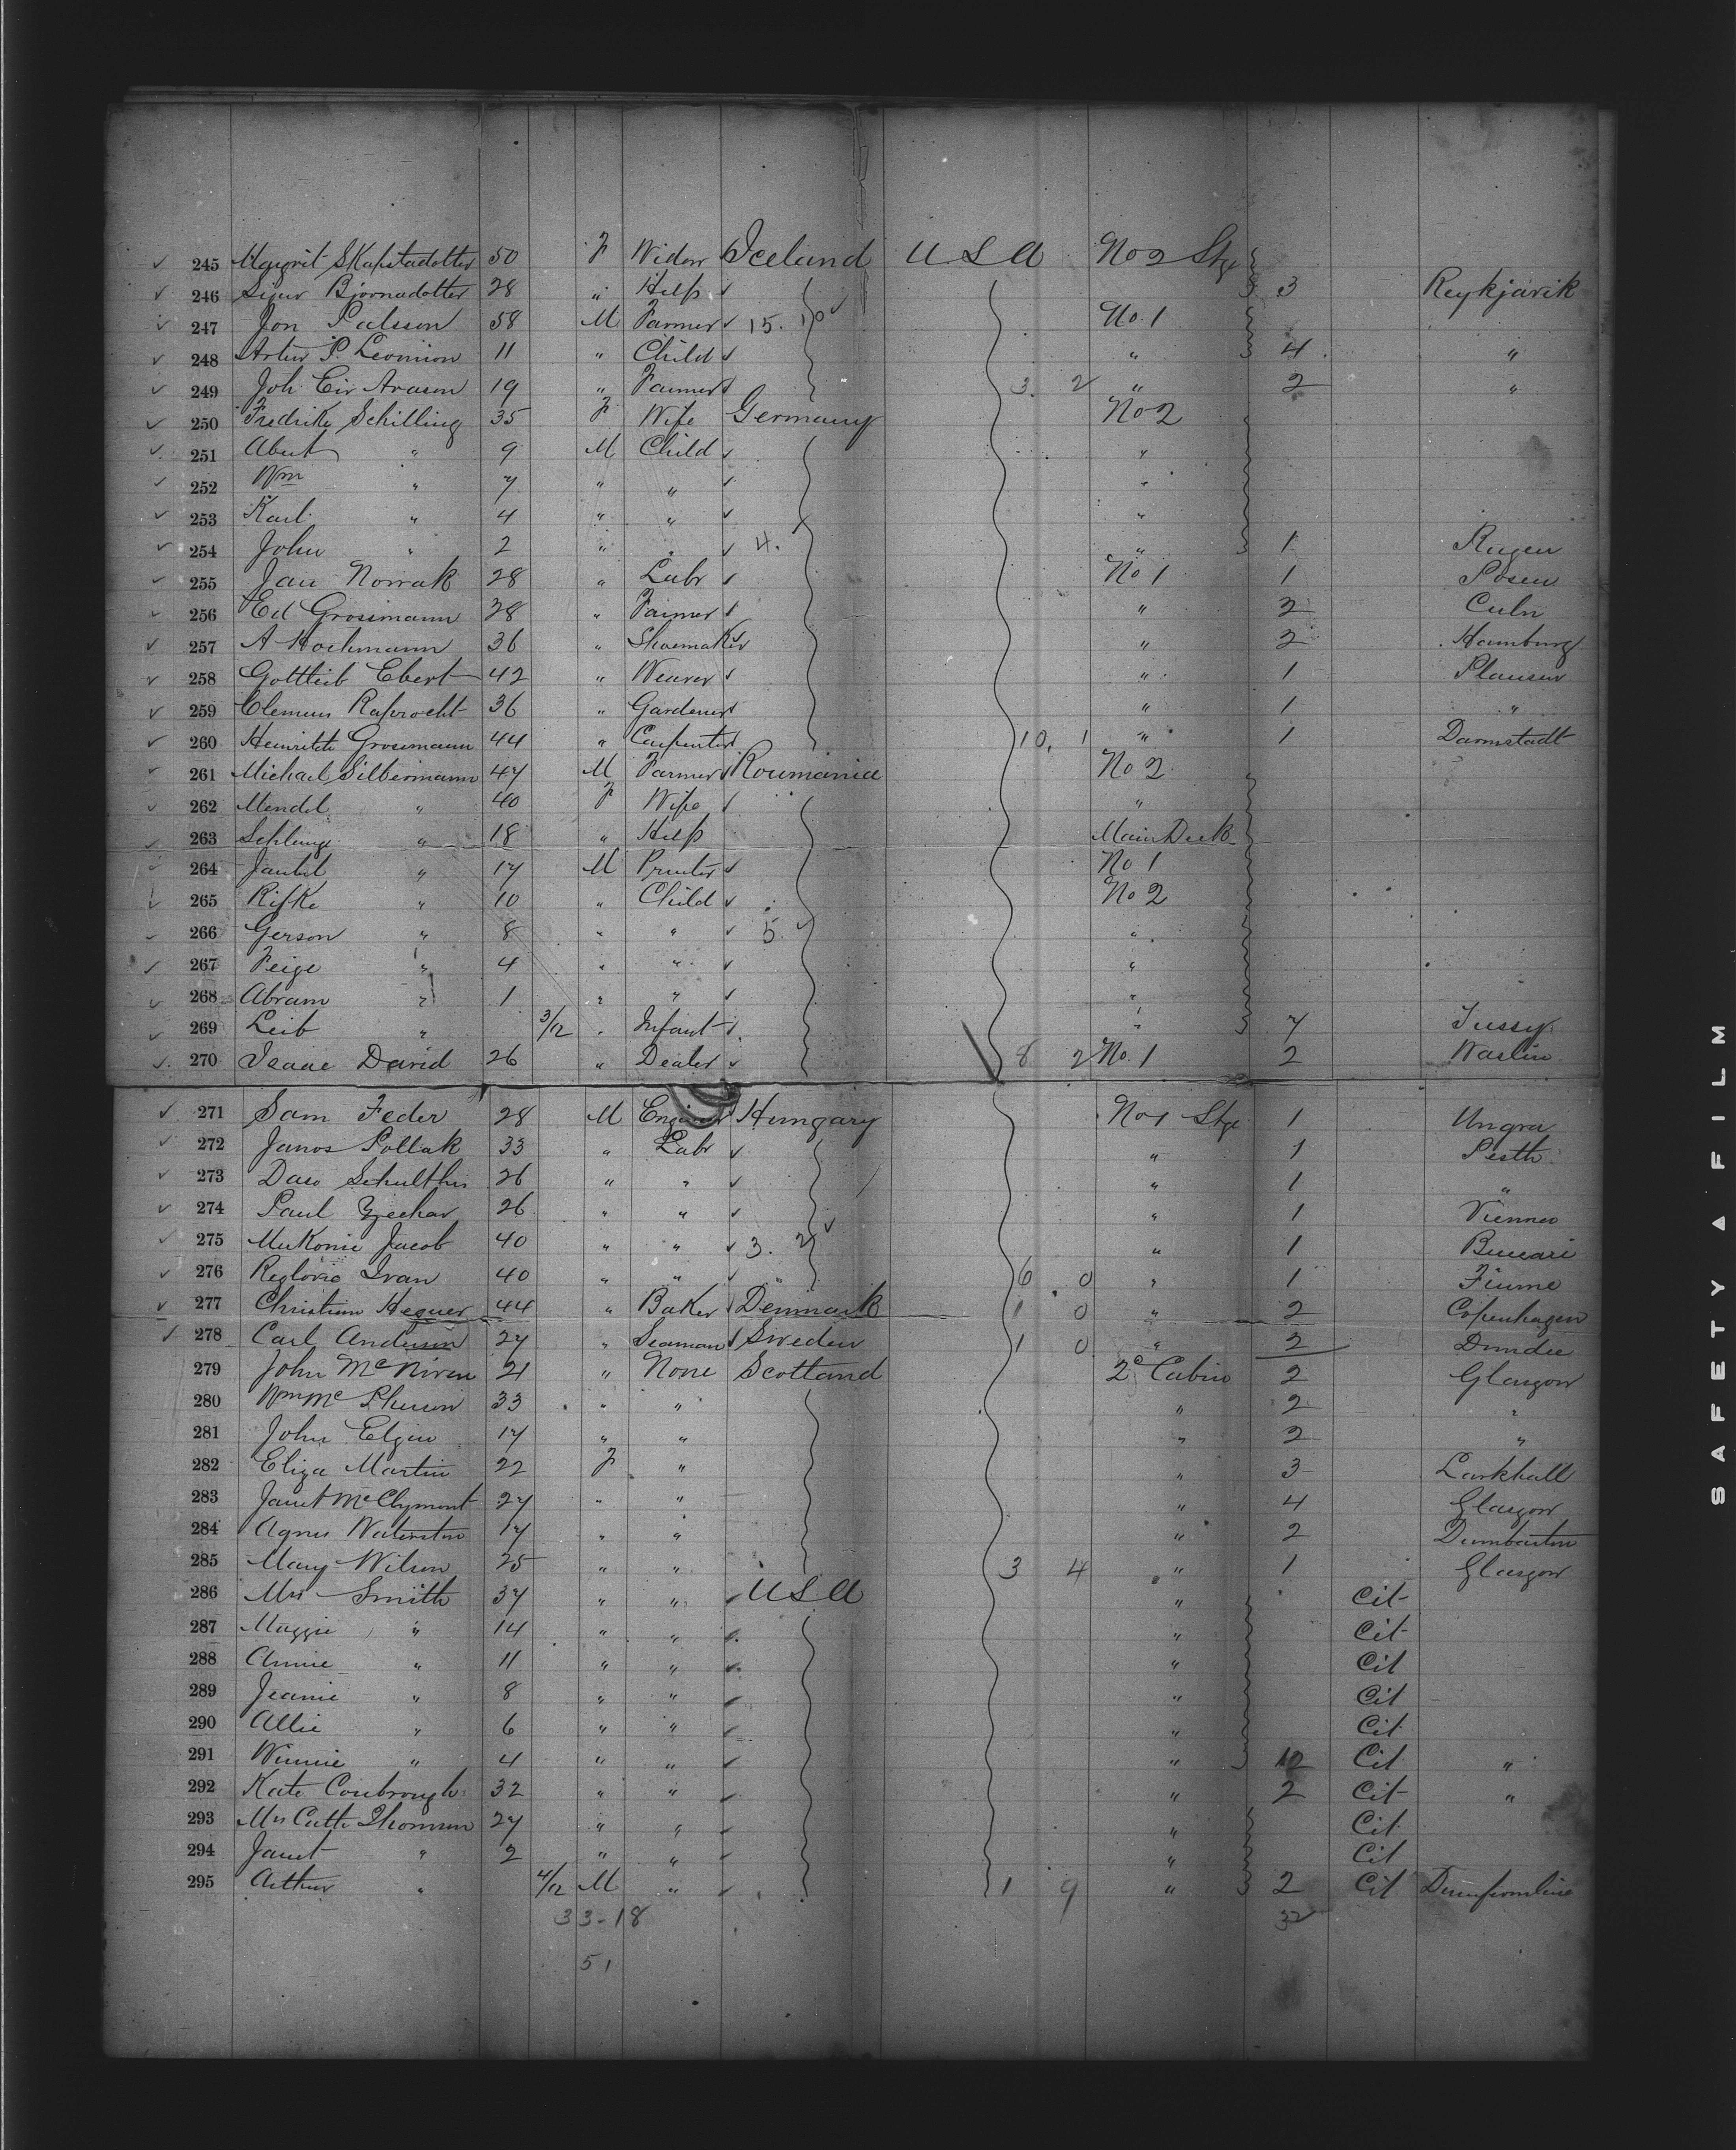 245 Margrit Skapstadotter 50 F Widow Iceland U S A No 2 Stge
246 Sigur Bjornadotter 28 " Help 3 Reykjavik
247 Jon Palsson 58 M Farmer 15. 10 No. 1
248 Artur P. 11 " Child " 4 "
249 Joh Eir Arason 19 " Farmer 3. 2 " 2 "
250 Fredrike Schilling 35 F Wife Germany No 2
251 Abert " 9 M Child "
252 Wm " 7 " " "
253 Karl " 4 " " "
254 John " 2 " " 4. " 1 Rugen
255 Jan Nowak 28 " Labr No 1 1 Posen
256 Ed Grossmann 38 " Farmer " 2 Culn
257 A Hochmann 36 " Shoemaker " 2 Hamburg
258 Gottlieb Ebert 42 " Weaver " 1 Plausen
259 Clemens Raprocht 36 " Gardener " 1 "
260 Heinrich Grossmann 44 " Carpenter 10. 1 " 1 Darmstadt
261 Michael Silbermann 47 M Farmer Roumania No 2
262 Mendel " 40 F Wife "
263 " 18 " Help Main Deck
264 " 17 M Printer No 1
265 Rifke " 10 " Child No 2
266 Gerson " 8 " " 5 "
267 Feige " 4 " " "
268 Abram " 1 " " "
269 Leib " 3/12 " Infant " 7 Jassy
270 Isaac David 26 " Dealer 8 2 No. 1 2 Waslin
271 Sam Feder 28 M Engineer Hungary No 1 Stge 1 Ungra
272 Janos Pollak 33 " Labr " 1 Pesth
273 Schulthis 26 " " " 1 "
274 Paul 26 " " " 1 Vienna
275 Jacob 40 " " 3. 2 " 1 Buccari
276 Ivan 40 " " 6 0 " 1 Fiume
277 Christian Hequer 44 " Baker Denmark 1 0 " 2 Copenhagen
278 Carl Andersen 27 " Seaman Sweden 1 0 " 2 Dundee
279 John McNiven 21 " None Scotland 2c Cabin 2 Glasgow
280 Wm McPherson 33 " " " 2 "
281 John Elgin 17 " " " 2 "
282 Eliza Martin 22 F " " 3 Larkhall
283 Janet McClymont 27 " " " 4 Glasgow
284 Agnes Waterston 17 " " " 2 Dumbarton
285 Mary Wilson 25 " " 3 4 " 1 Glasgow
286 Mrs Smith 37 " " U S A " Cit
287 Maggie " 14 " " " Cit
288 Annie " 11 " " " Cit
289 Jeanie " 8 " " " Cit
290 Allie " 6 " " " Cit
291 Winnie " 4 " " " 12 Cit "
292 Kate Coubrough 32 " " " 2 Cit "
293 Mrs Cath Thomson 27 " " " Cit
294 Janet " 2 " " " Cit
295 Arthur " 4/12 M " 1 9 " 2 Cit Dunfermline
33-18 32
51
SAFETY FILM